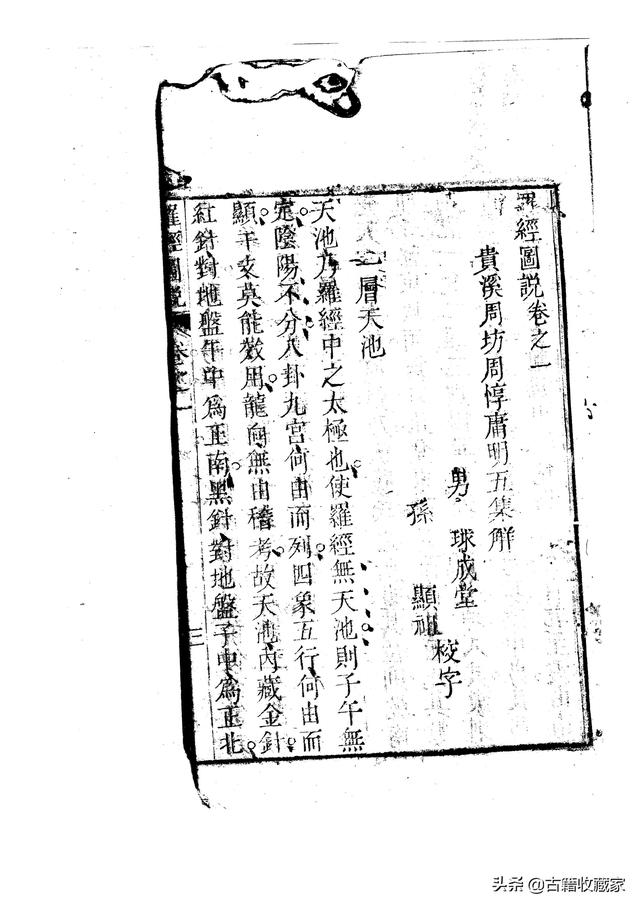 羅經圖說卷之一
貴溪周坊周惇庸明五集解
男 球成堂
孫 顯祖 校字
一層天池
天池乃羅經中之太極也使羅經無天池則子午無
定陰陽不分八卦九宮何由而列四象五行何由而
顯干支莫能效用龍向無由稽考故天池內藏金針
紅針對地盤午中為正南黑針對地盤子中為正北
羅經圖說 卷之一
頭条 @古籍收藏家